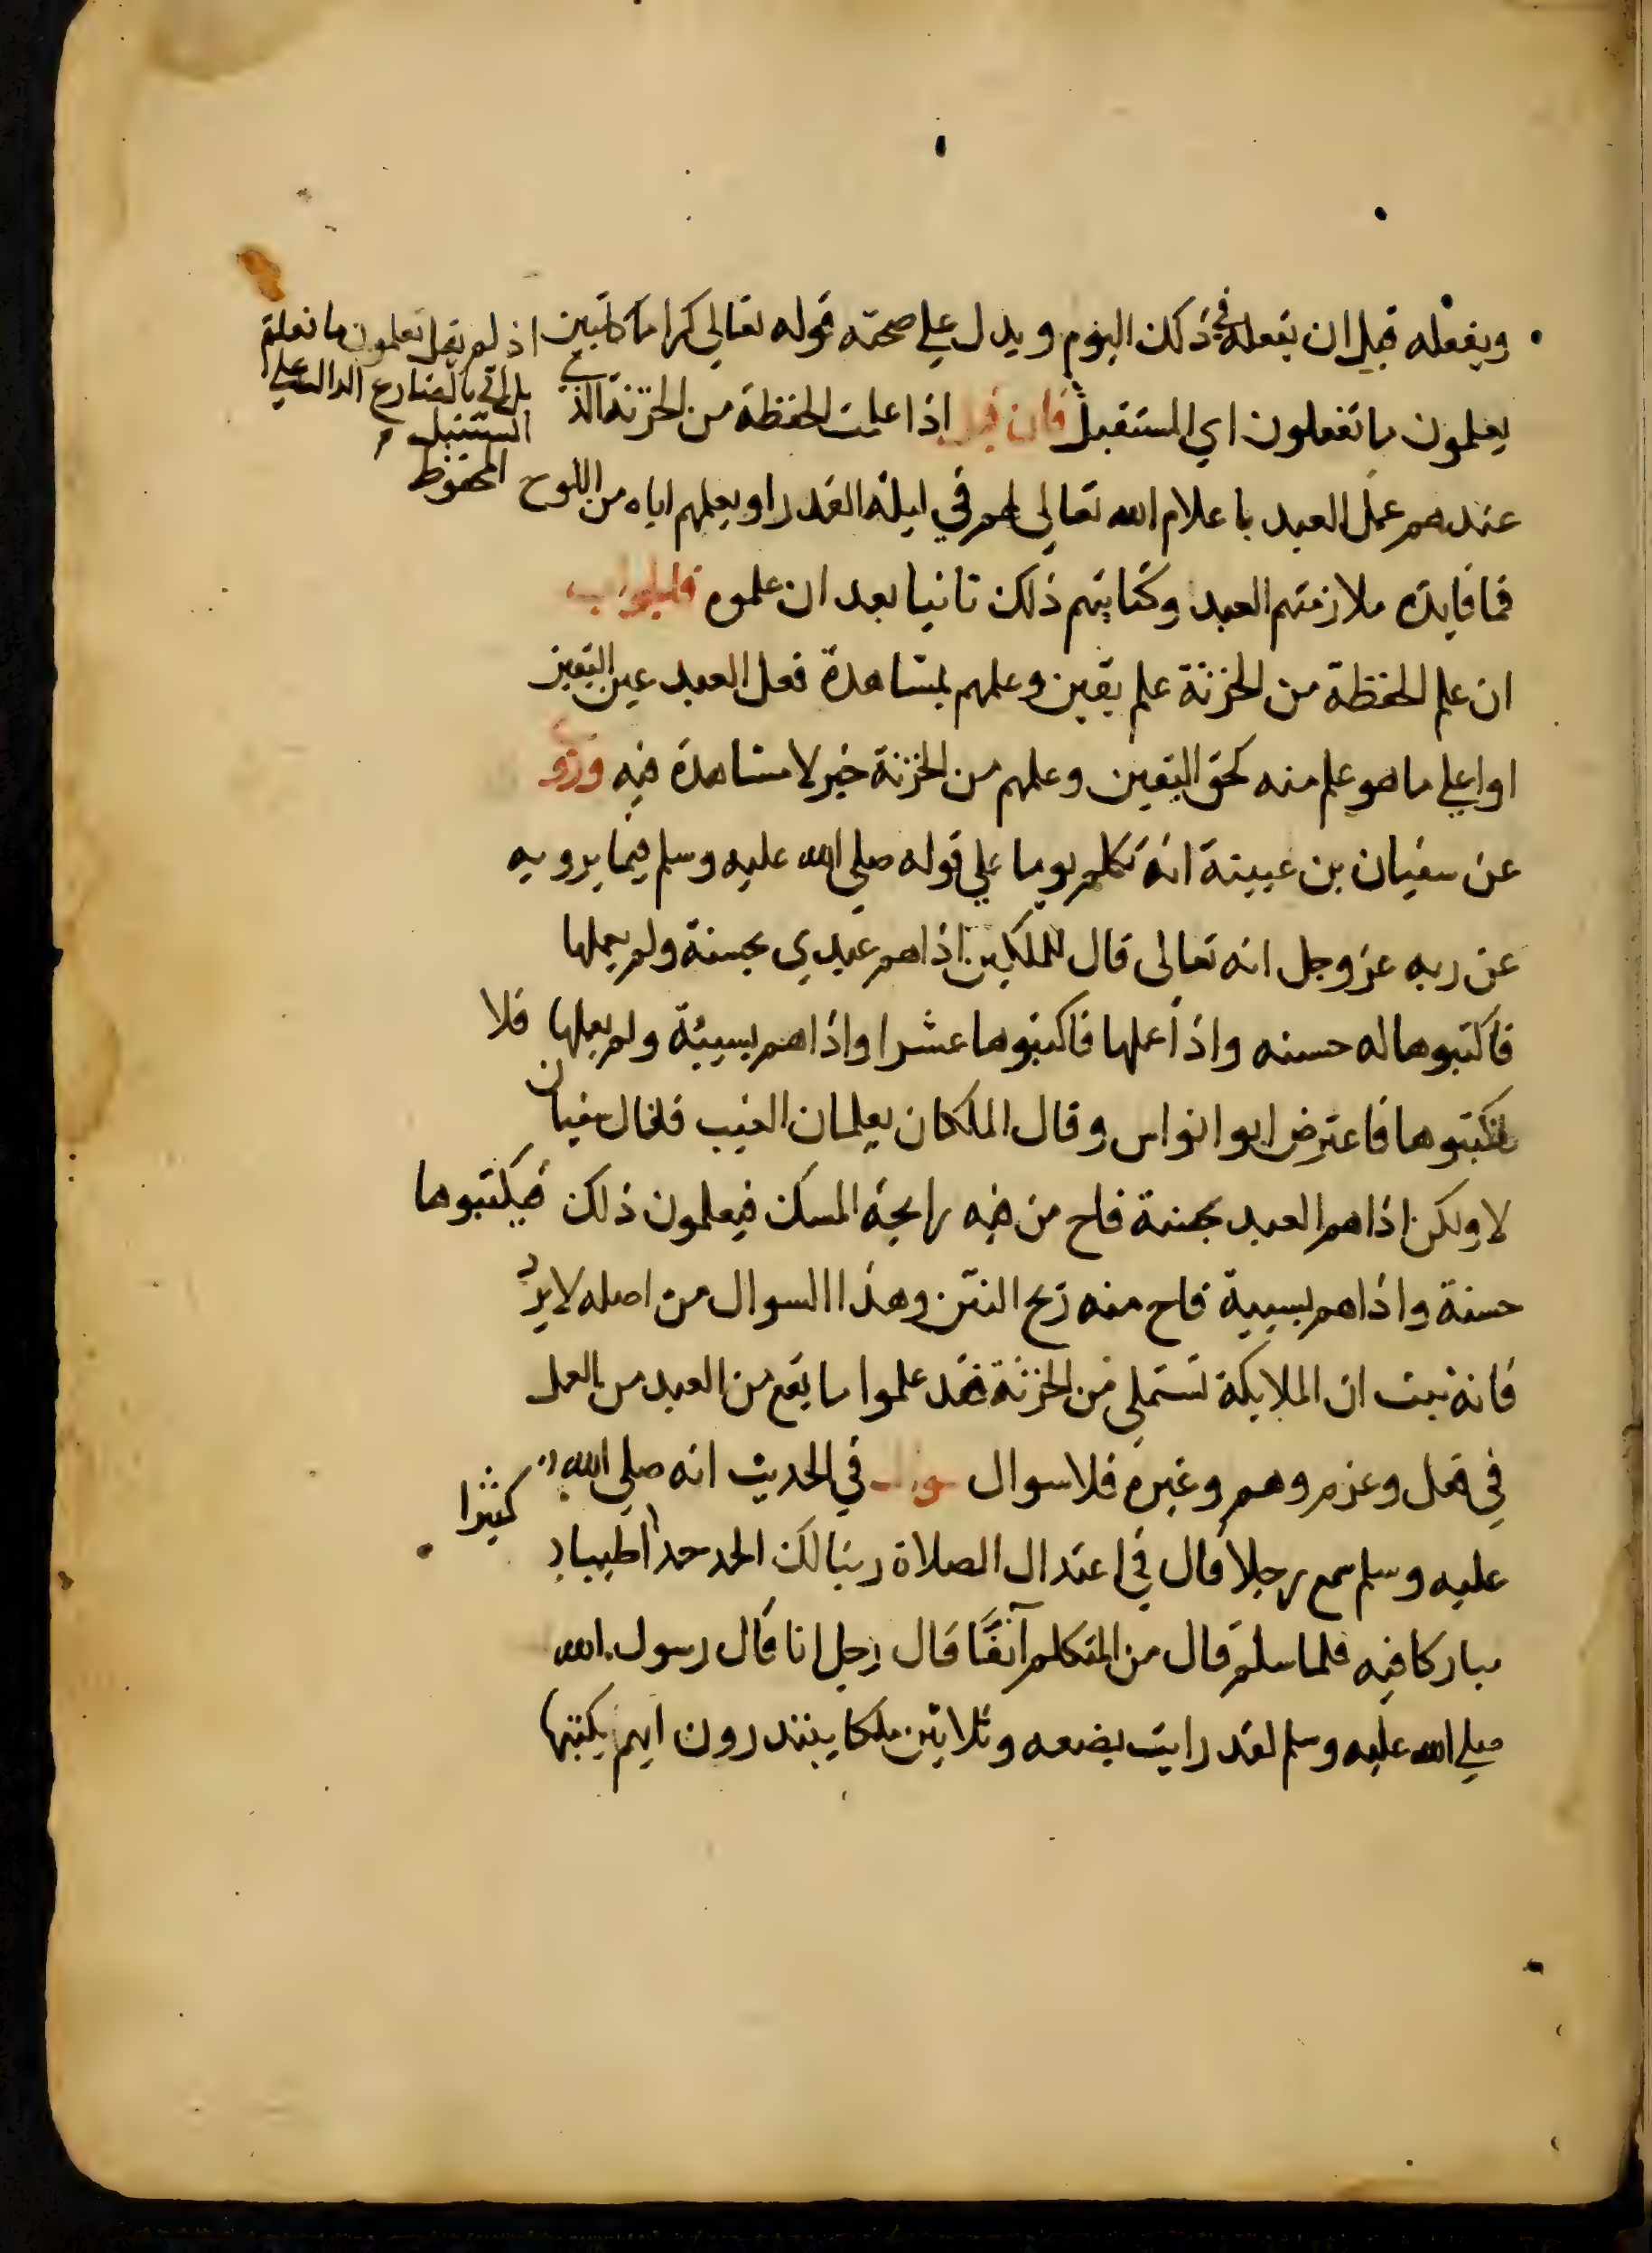 ويفعله قبل ان يفعله في ذلك اليوم ويدل علي صحته قوله تعالي كراما كاتبين
اذ لم يقل تعلمون ما نعلم
بل اتي بالمضارع الدال علي
المستقبل
يعلمون ما تفعلون اي المستقبل فان قيل اذا علمت الحفظة من الخزنة الذي
عندهم عمل العبد باعلام الله تعالى لهم في ليلة القدر او بعلمهم اياه من اللوح المحفوظ
فما فايدة ملازمتهم العبد وكتابتهم ذلك ثانيا بعد ان علموه فالجواب
ان علم الحفظة من الخزنة علم يقين وعلمهم بمشاهدة فعل العبد عين اليقين
او اعلي ما هو علم منه كحق اليقين وعلمهم من الخزنة خبر لا مشاهدة فيه وروي
عن سفيان بن عيينة انه تكلم يوما علي قوله صلي الله عليه وسلم فيما يرويه
عن ربه عز وجل انه تعالى قال للملكين اذا هم عبدي بحسنة ولم يعملها
فاكتبوها له حسنه واذا عملها فاكتبوها عشرا واذا هم بسيئة ولم يعملها فلا
تكتبوها فاعترض ابو انواس وقال الملكان يعلمان الغيب فقال سفيان
لا ولكن اذا هم العبد بحسنة فاح من فيه رايحة المسك فيعلمون ذلك فيكتبوها
حسنة واذا هم بسيية فاح منه ريح النتن وهذا السوال من اصله لا يرد
فانه ثبت ان الملايكة تستملي من الخزنة فقد علموا ما يقع من العبد من العمل
في فعل وعزم وهم وغيره فلا سوال سوال في الحديث انه صلي الله
عليه وسلم سمع رجلا قال في اعتدال الصلاة ربنا لك الحمد حمدا طيبا
كثيرا
مباركا فيه فلما سلم قال من المتكلم آنفًا قال رجل انا قال رسول الله
صلي الله عليه وسلم لقد رايت بضعه وثلاثين ملكا يبتدرون ايهم يكتبها